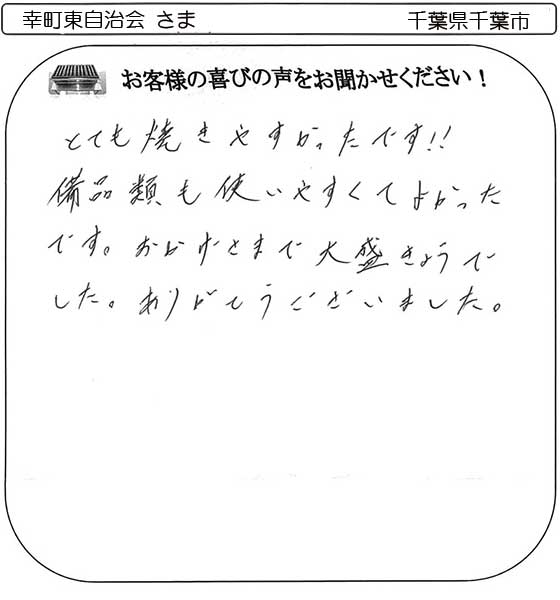 幸町東自治会 さま
千葉県千葉市
お客様の喜びの声をお聞かせください！
とても焼きやすかったです!!
備品類も使いやすくてよかった
です。おかげさまで大盛きょうで
した。ありがとうございました。